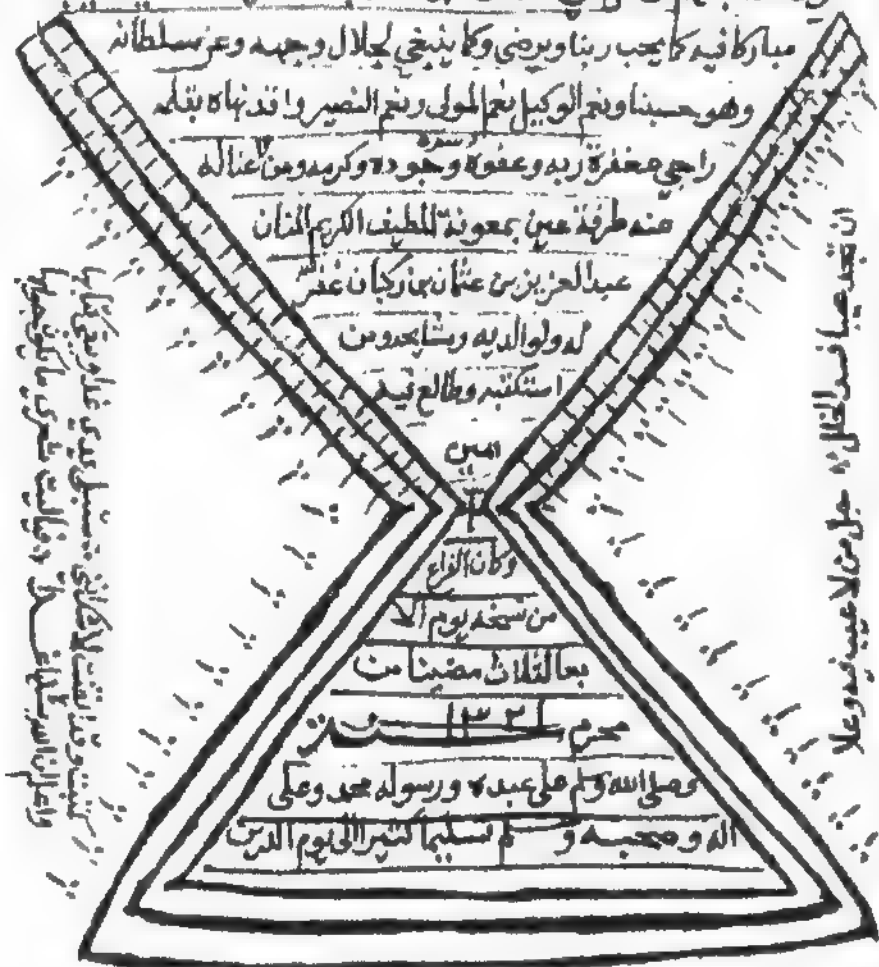 مباركا فيه كما يحب ربنا ويرضى وكما ينبغي لجلال وجهه وعز سلطانه
وهو حسبنا ونعم الوكيل نعم المولى ونعم النصير وا قد نهاه بقلمه
راجي مغفرة ربه وعفوه وجوده وكرمه ومن غناله
عنه طرفة عين بمعونة اللطيف الكريم المنان
عبد العزيز بن عثمان بن ركبان غفر
له ولوالديه ومشايخه ومن
استكتبه وطالع فيه
امين
وكان الفراغ
من نسخه يوم الا
بعا لثلاث مضينا من
محرم سنة ١٣٢١
وصلى الله وسلم على عبده ورسوله محمد وعلى
اله وصحبه وسلم تسليما كثيرا الى يوم الدين
ان تجد عيبا فسد الخللا جل من لا عيب فيه وعلا
كتبت وقد ايقنت لا شك انني ستبلى يدي